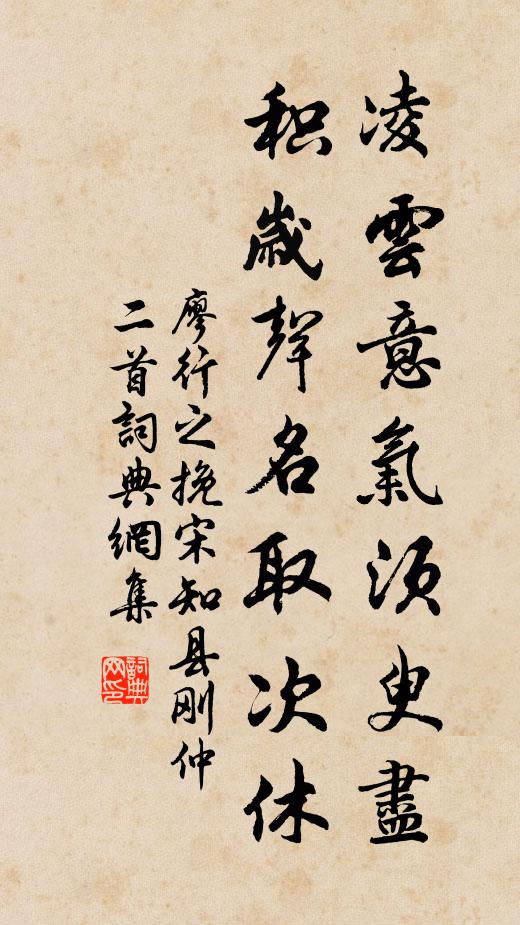 凌雲意氣須臾盡
积歲聲名取次休
廖行之挽宋知县刚仲
二首詞典網集
詞典网印